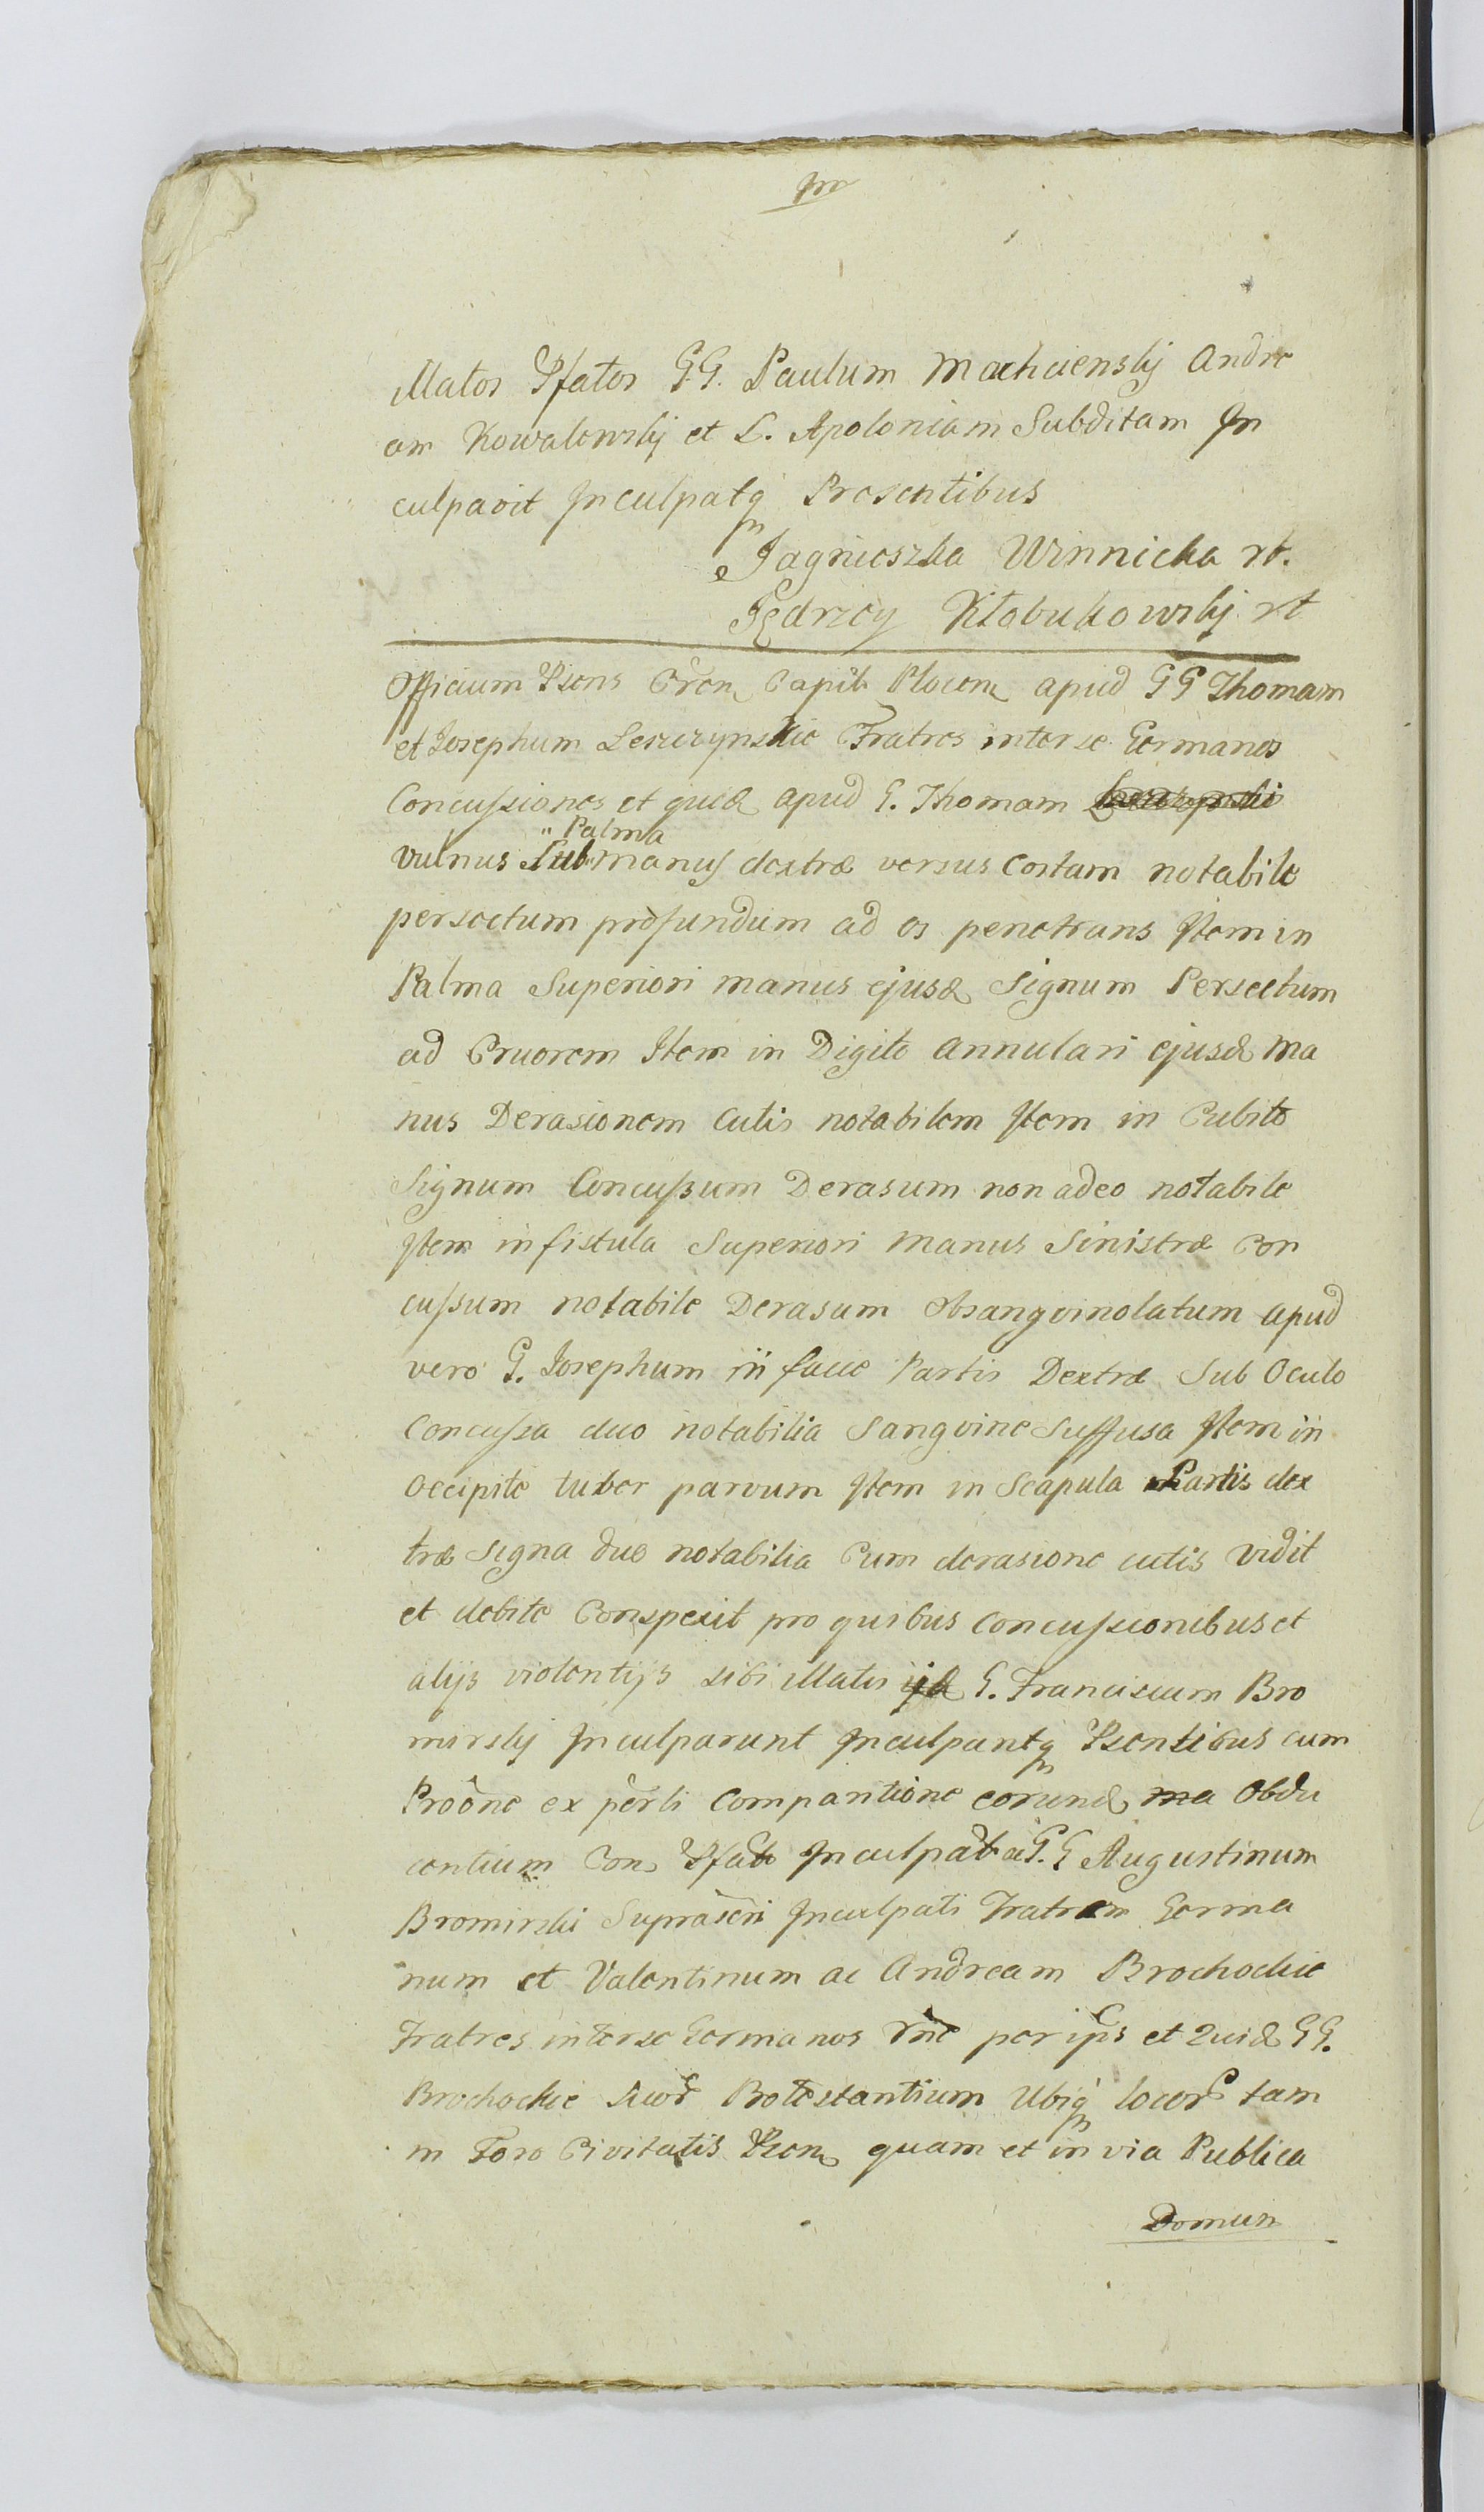 In
illatos Pfatos G.G. Paulum Machcienskj Andre
am Kowalewskj et L. Apoloniam Subditam In
culpavit Inculpatq Presentibus
Jagnieszka Winnicka rt.
Jędrzey Kłobukowskj rt
Officium Psens Cren Capit Plocen apud GG Thomam
et Josephum Leszczynskie Fratres inter se Germanos
Concussiones et quid apud G. Thomam
Palma
vulnus Sub manus dextræ versus Costam notabile
persectum profundum ad os penetrans Item in
Palma Superiori manus ejusd Signum Persectum
ad Cruorem Item in Digito annulari ejusd Ma
nus Derasionem Cutis notabilem Item in Cubito
Signum Concussum Derasum non adeo notabile
Item in fistula Superiori Manus Sinistræ Con
cussum notabile Derasum obsangvinolatum apud
vero G. Josephum in facie Partis Dextræ Sub Oculo
Concussa duo notabilia Sangvine Suffusa Item in
Occipite tuber parvum Item in Scapula Partis dex
træ Signa duo notabilia Cum derasione cutis Vidit
et debite Conspexit pro quibus Concussionibus et
alijs violentijs sibi illatis ijd G. Franciscum Bro
mirskj Inculparunt Inculpantq Psentibus cum
Proône ex perti Comparitione eorund ma Obdu
centium Con Pfat Inculpat a G.G Augustinum
Bromirski Suprascri Inculpati Fratrem Germa
num et Valentinum ac Andream Brochockie
Fratres inter se Germanos rne per ips et Quid GG.
Brochockie Suor Protestantium Ubiq locor tam
in Foro Civitatis Psen quam et in via Publica
Domum